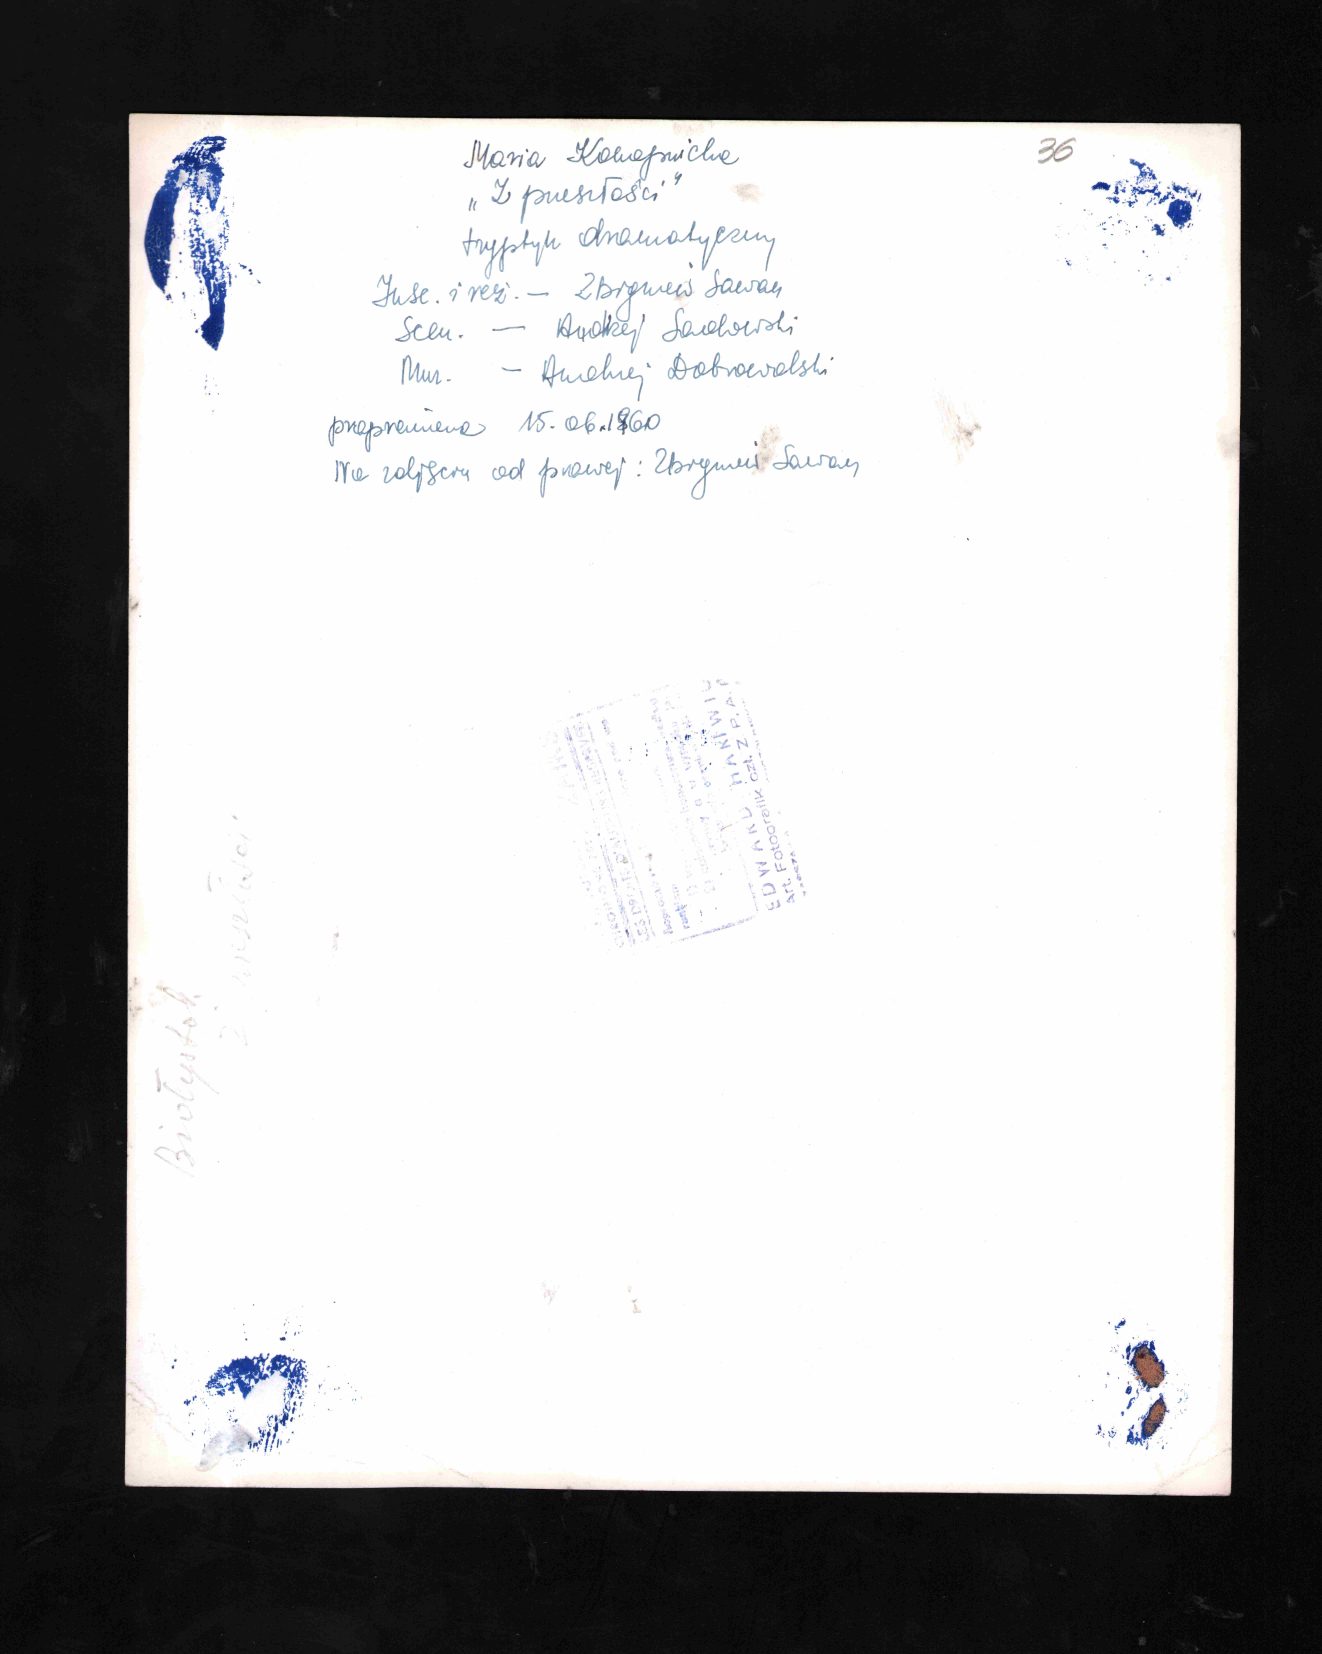 36
Maria Konopnicka
„Z przeszłości"
tryptyk dramatyczny
Insc. i reż. — Zbigniew Sawan
Scen. — Andrzej Sadowski
Muz. — Andrzej Dobrowolski
prapremiera 15.06.1960
Na zdjęciu od prawej: Zbigniew Sawan
EDWARD HARTWIG
Art. Fotografik czł. Z.P.A.F
Białystok
Z przeszłości